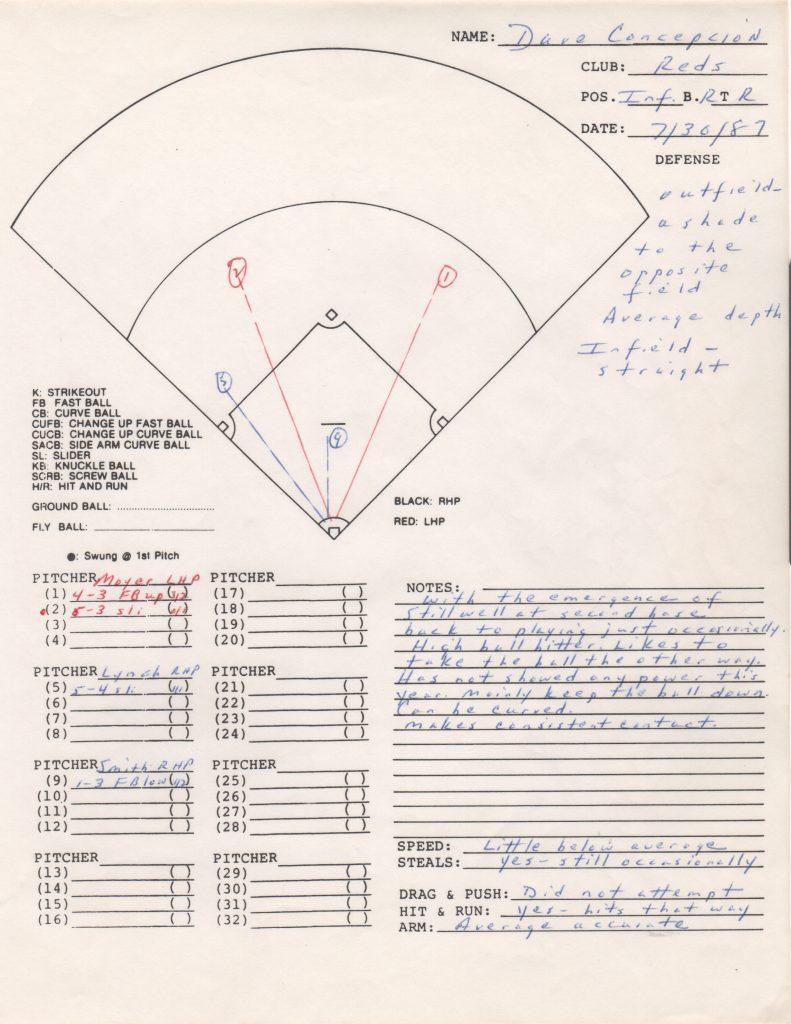 NAME: Dave Concepcion
CLUB: Reds
POS. Inf. B. R T R
DATE: 7/30/87
DEFENSE
outfield-
a shade
to the
opposite
field
Average depth
Infield -
straight
2
1
5
9
K: STRIKEOUT
FB FAST BALL
CB: CURVE BALL
CUFB: CHANGE UP FAST BALL
CUCB: CHANGE UP CURVE BALL
SACB: SIDE ARM CURVE BALL
SL: SLIDER
KB: KNUCKLE BALL
SCRB: SCREW BALL
H/R: HIT AND RUN
GROUND BALL:
FLY BALL:
BLACK: RHP
RED: LHP
●: Swung @ 1st Pitch
PITCHER Moyer LHP
(1) 4-3 FB up (1/2)
(2) 5-3 sli
(3) ( )
(4) ( )
PITCHER Lynch RHP
(5) 5-4 sli (1/1)
(6) ( )
(7) ( )
(8) ( )
PITCHER Smith RHP
(9) 1-3 FB low (1/2)
(10) ( )
(11) ( )
(12) ( )
PITCHER
(13) ( )
(14) ( )
(15) ( )
(16) ( )
PITCHER
(17) ( )
(18) ( )
(19) ( )
(20) ( )
PITCHER
(21) ( )
(22) ( )
(23) ( )
(24) ( )
PITCHER
(25) ( )
(26) ( )
(27) ( )
(28) ( )
PITCHER
(29) ( )
(30) ( )
(31) ( )
(32) ( )
NOTES:
with the emergence of
Stillwell at second base
back to playing just occasionally.
High ball hitter. Likes to
take the ball the other way.
Has not showed any power this
year. Mainly keep the ball down.
Can be curved.
makes consistent contact.
SPEED: Little below average
STEALS: yes - still occasionally
DRAG & PUSH: Did not attempt
HIT & RUN: yes - hits that way
ARM: Average accurate